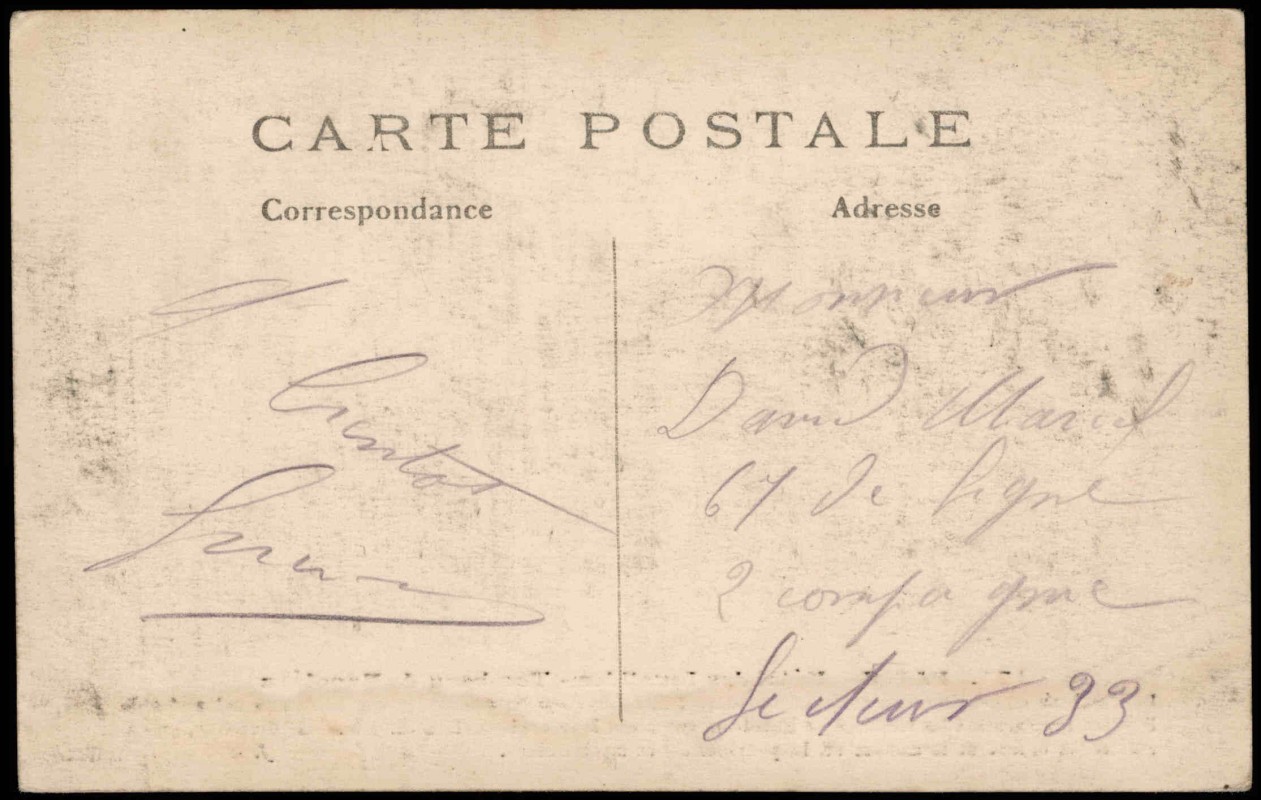 CARTE POSTALE
Correspondance
Adresse
A
Bientot
Monsieur
David Marcel
67 de ligne
2 compagnie
Secteur 33